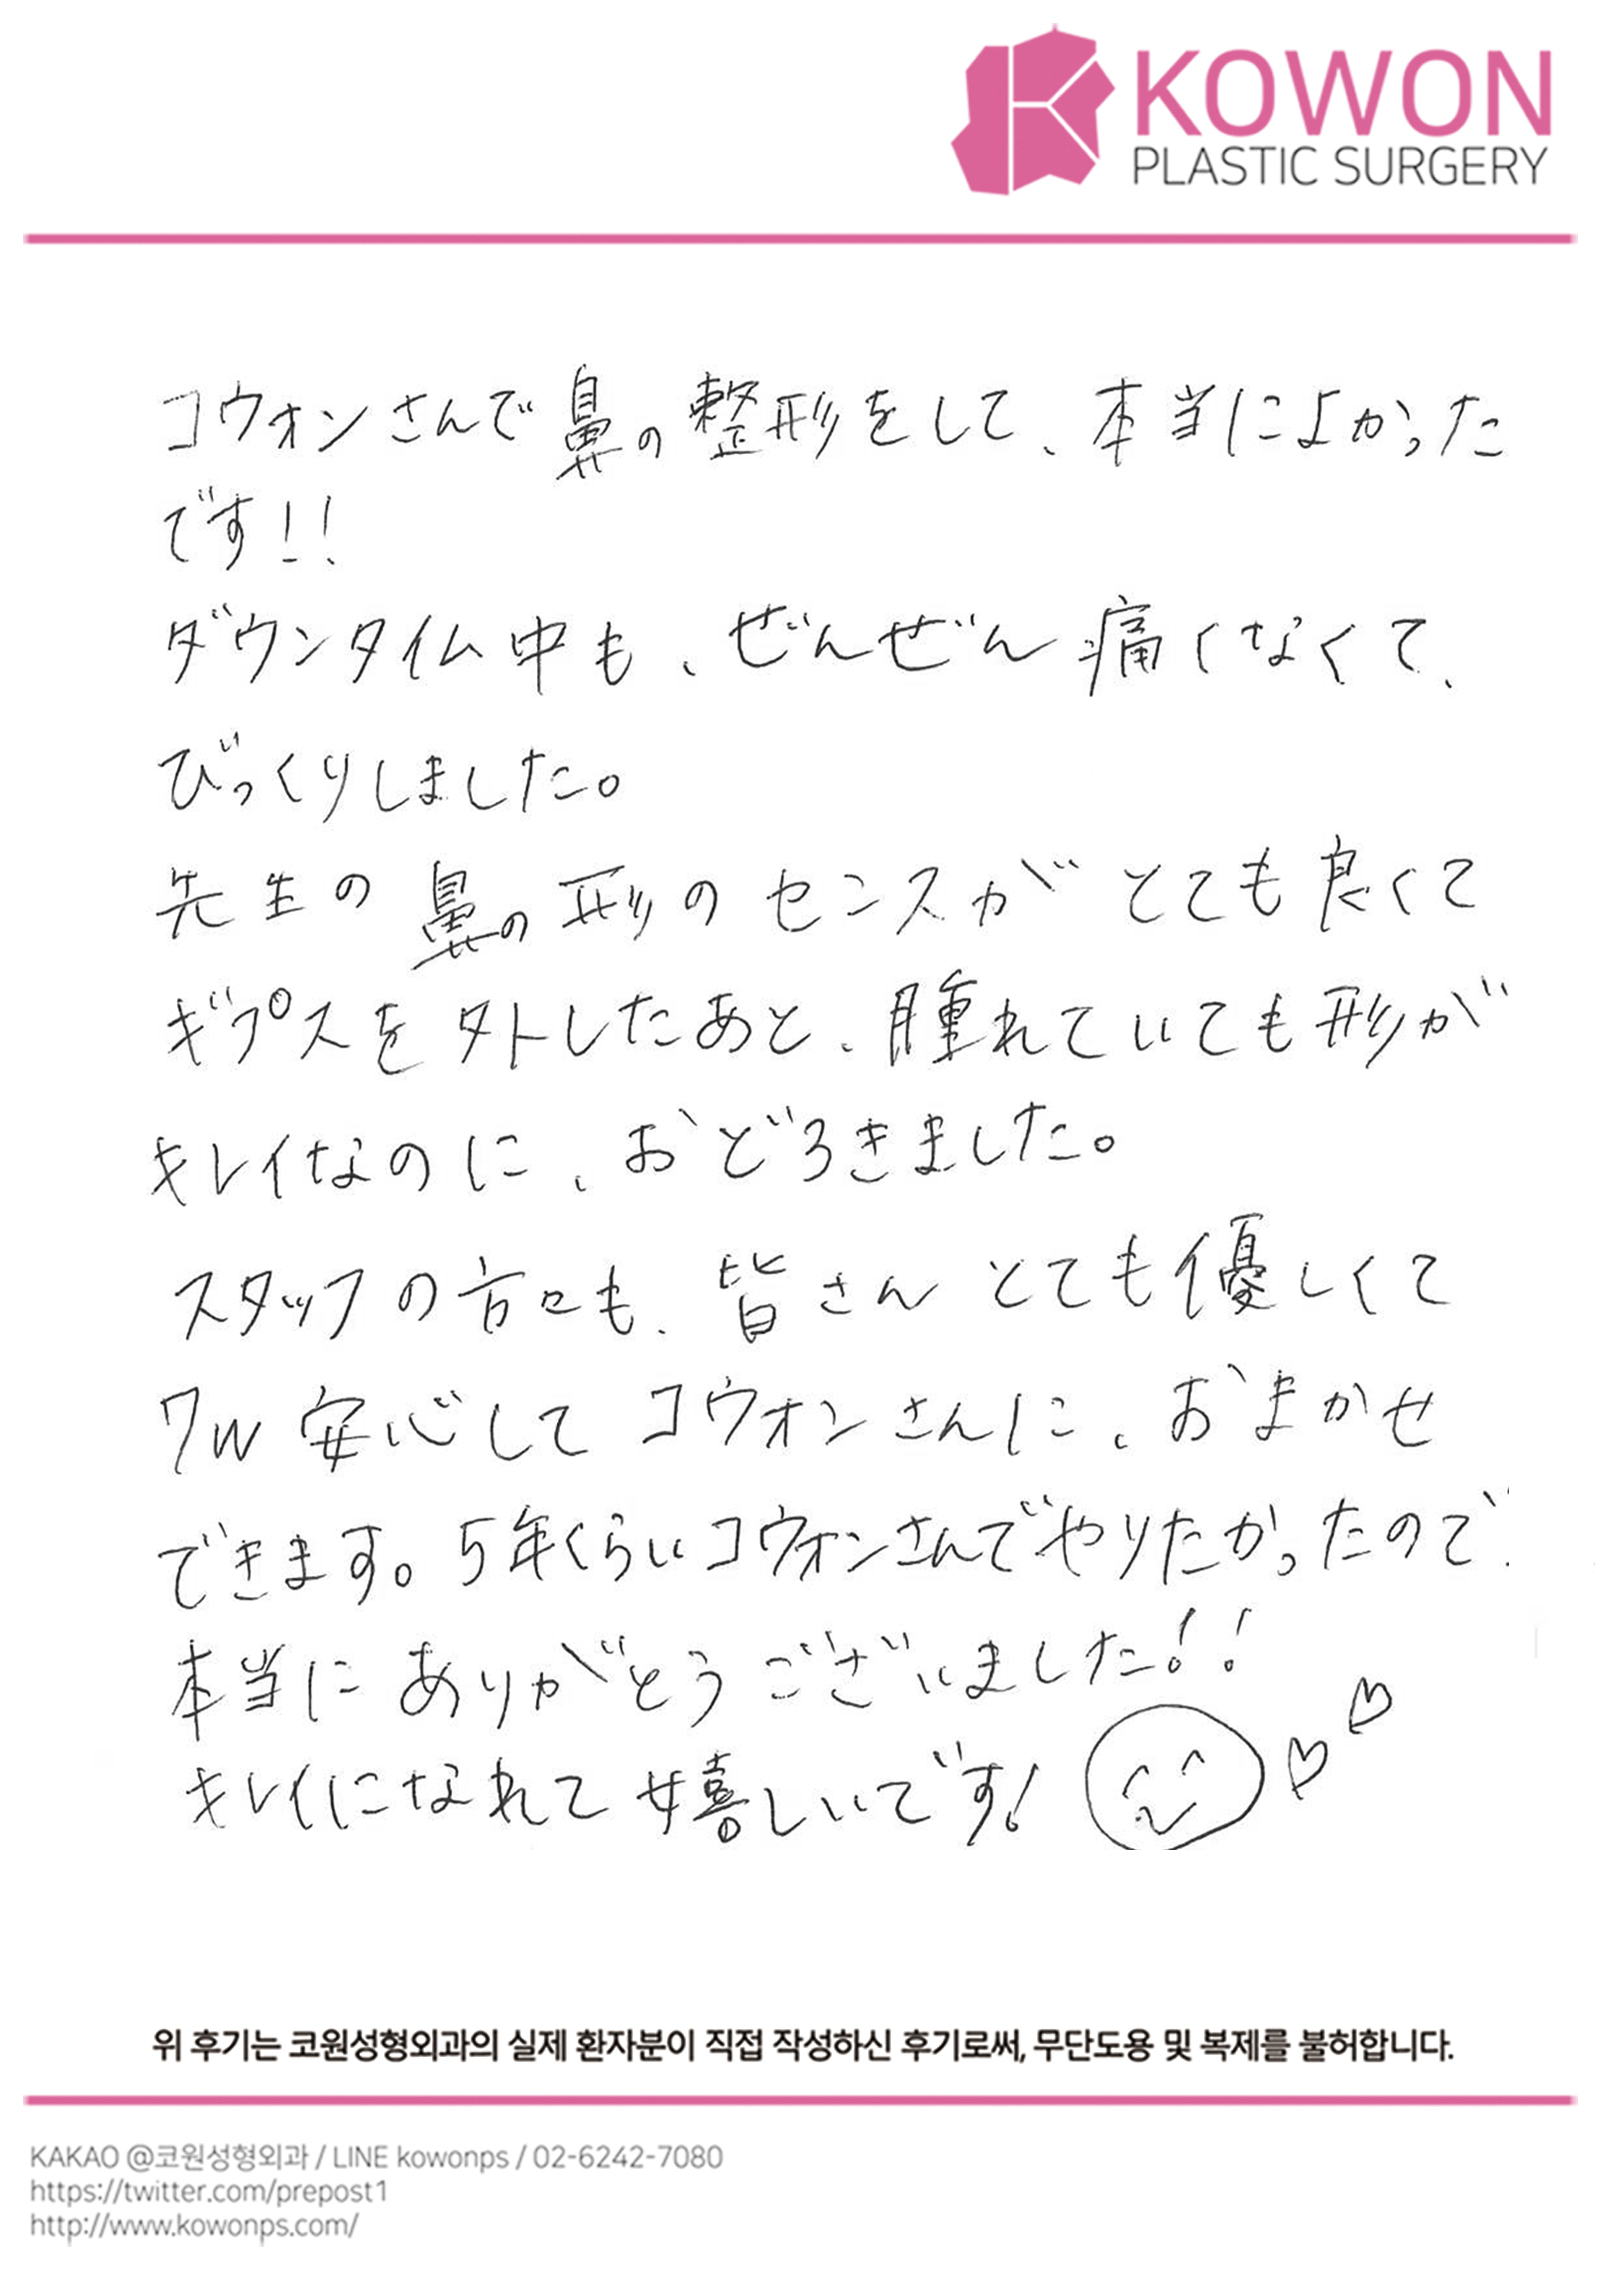 KOWON
PLASTIC SURGERY
コウォンさんで鼻の整形をして、本当によかった
です！！
ダウンタイム中も、ぜんぜん痛くなくて、
びっくりしました。
先生の鼻の形のセンスがとても良くて
ギプスを外したあと、腫れていても形が
キレイなのに、おどろきました。
スタッフの方々も、皆さんとても優しくて
安心してコウォンさんに、おまかせ
できます。5年くらいコウォンさんでやりたかったので、
本当にありがとうございました！！
キレイになれて嬉しいです！
위 후기는 코원성형외과의 실제 환자분이 직접 작성하신 후기로써, 무단도용 및 복제를 불허합니다.
KAKAO @코원성형외과 / LINE kowonps / 02-6242-7080
https://twitter.com/prepost1
http://www.kowonps.com/